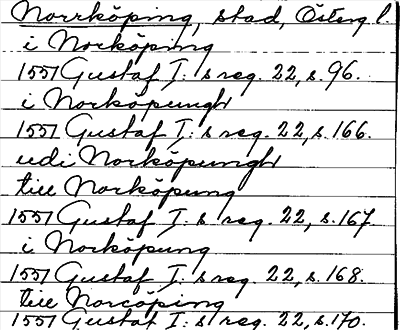 Norrköping, stad, Österg l.
i Norköping
1551 Gustaf I: s reg. 22, s. 96.
i Norköpungh
1551 Gustaf I: s reg. 22, s. 166.
udi Norköpungh
till Norköpung
1551 Gustaf I: s reg. 22, s. 167.
i Norköpung
1551 Gustaf I: s reg. 22, s. 168.
till Norcöping
1551 Gustaf I: s reg. 22, s. 170.